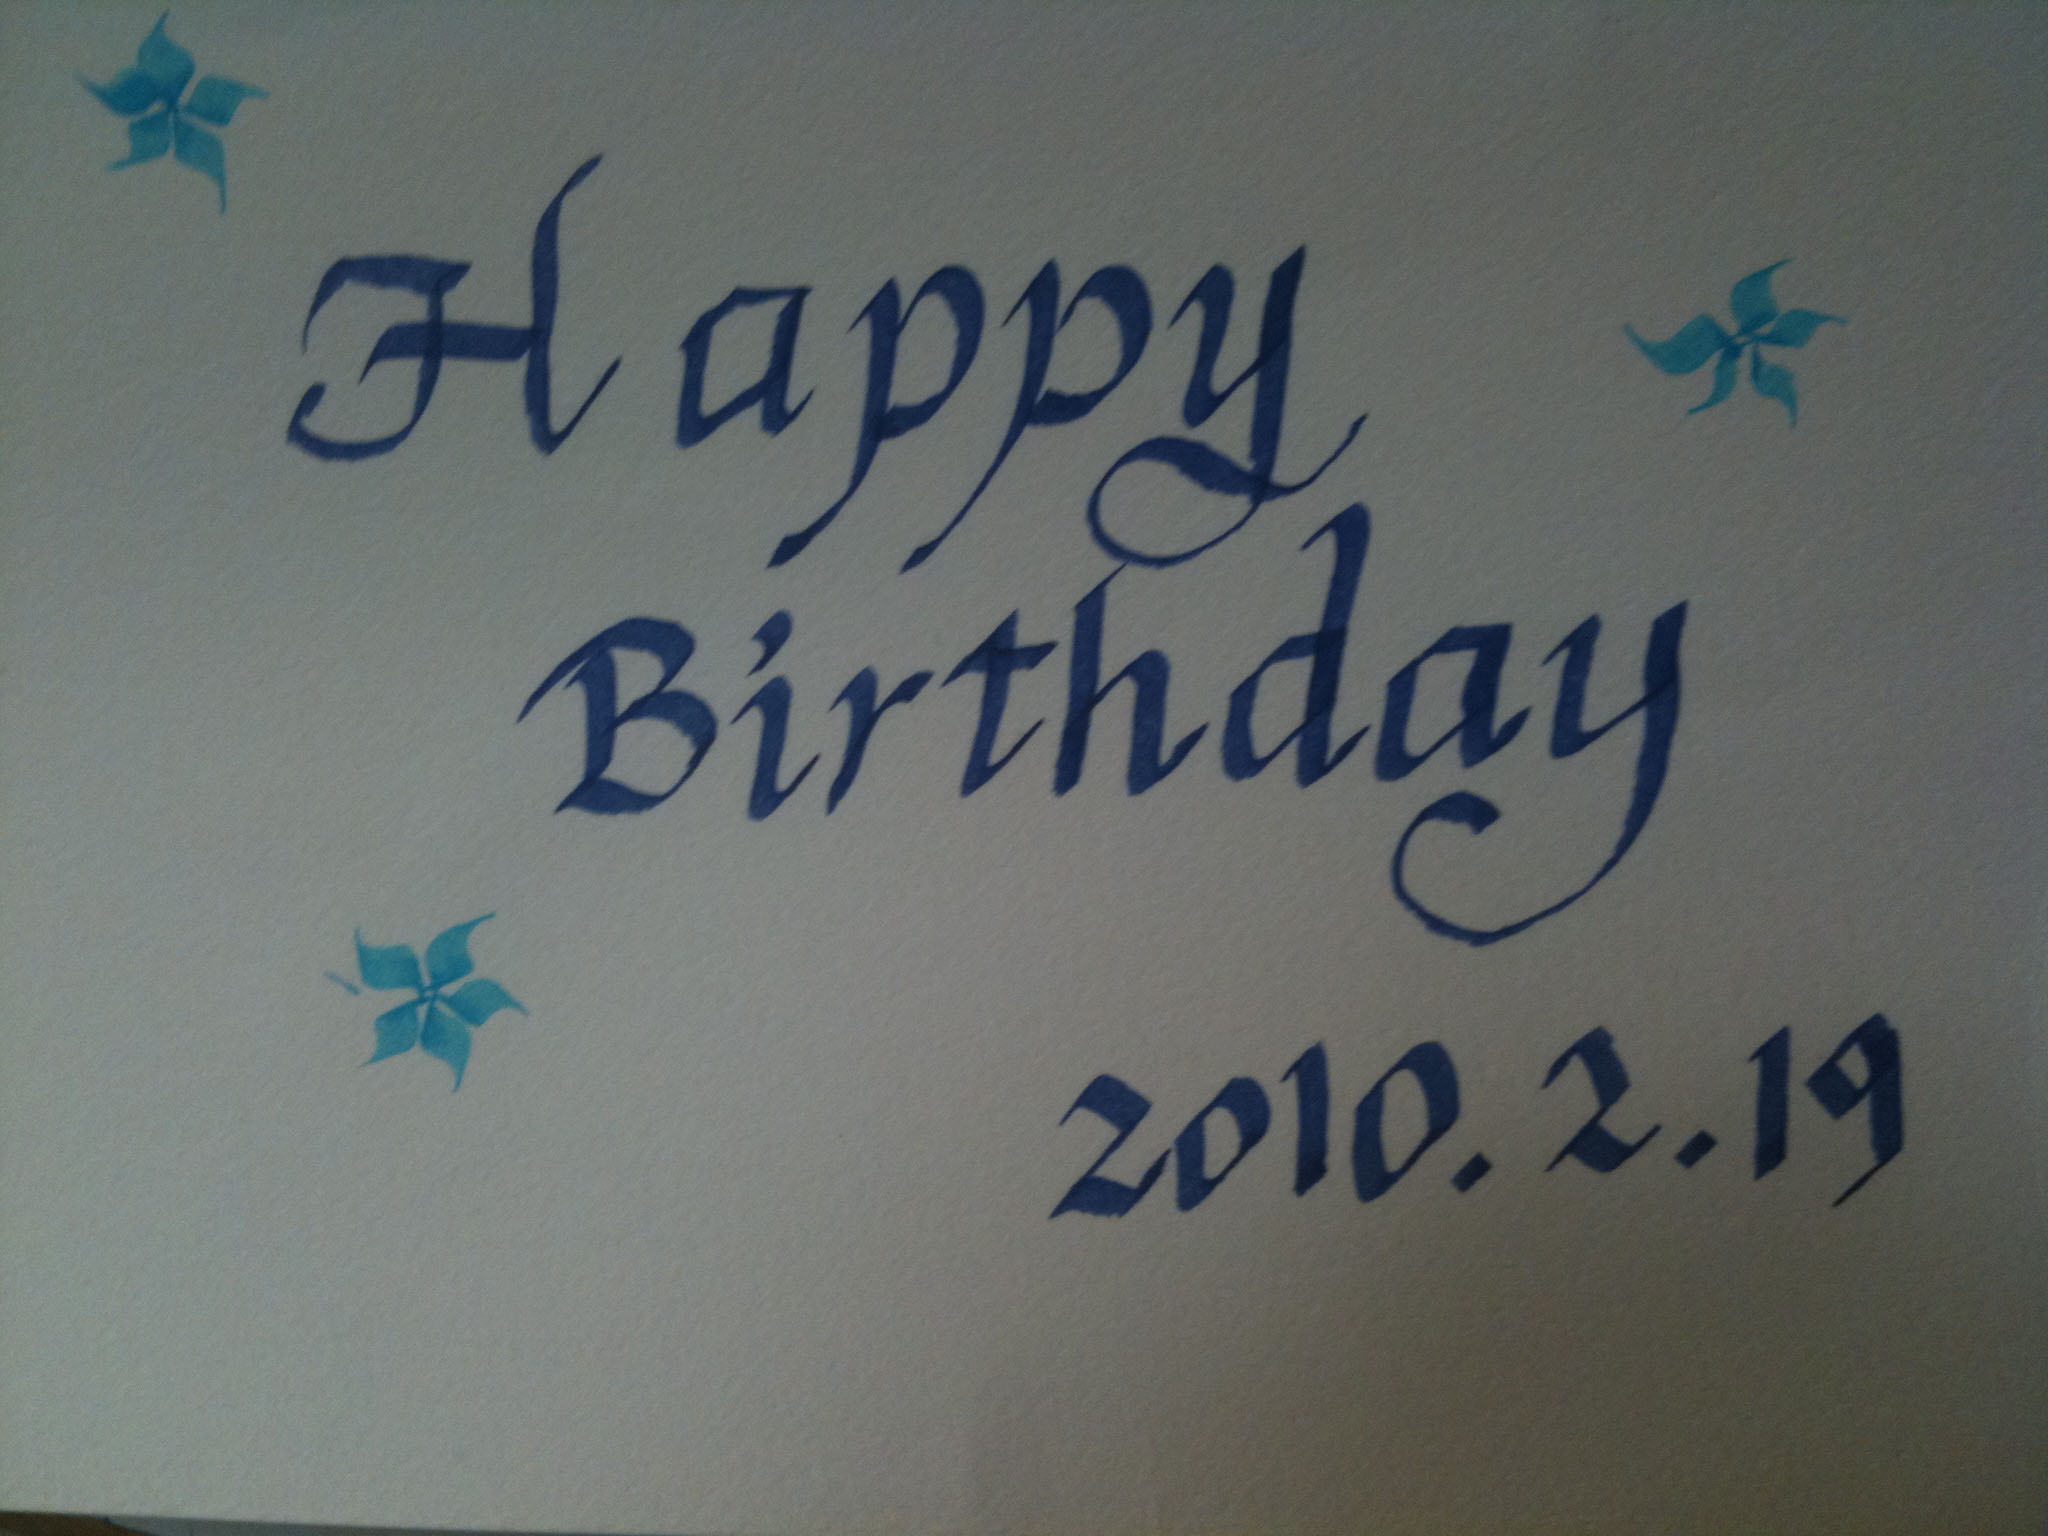 Happy
Birthday
2010.2.19